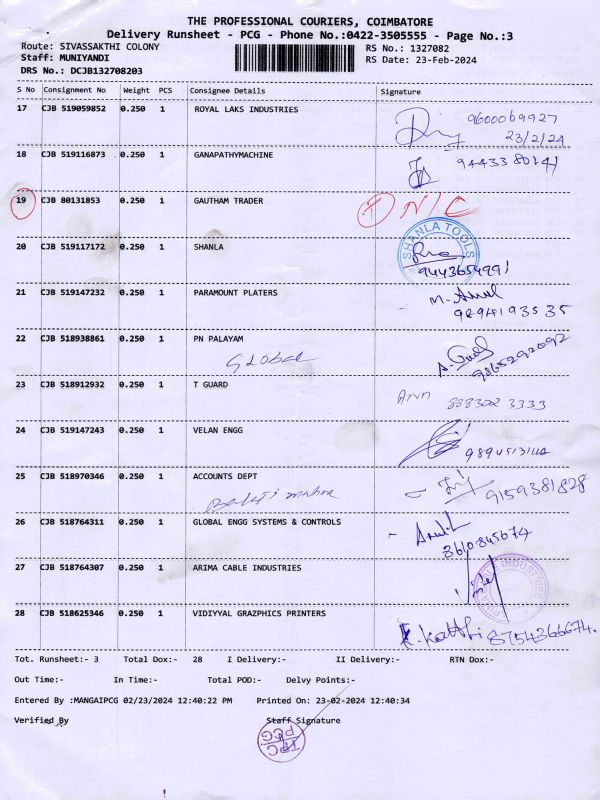 THE PROFESSIONAL COURIERS, COIMBATORE
Delivery Runsheet - PCG - Phone No.:0422-3505555 - Page No.:3
Route: SIVASSAKTHI COLONY
RS No.: 1327082
Staff: MUNIYANDI
RS Date: 23-Feb-2024
DRS No.: DCJB132708203
S No Consignment No Weight PCS Consignee Details Signature
17 CJB 519059852 0.250 1 ROYAL LAKS INDUSTRIES
9600069927
23/2/24
18 CJB 519116873 0.250 1 GANAPATHYMACHINE
19 CJB 80131853 0.250 1 GAUTHAM TRADER N/C
20 CJB 519117172 0.250 1 SHANLA
SHANLA TOOLS
9443654991
21 CJB 519147232 0.250 1 PARAMOUNT PLATERS
9894193535
22 CJB 518938861 0.250 1 PN PALAYAM
GLOBAL
9865292092
23 CJB 518912932 0.250 1 T GUARD
Arun 888302 3333
24 CJB 519147243 0.250 1 VELAN ENGG
25 CJB 518970346 0.250 1 ACCOUNTS DEPT
9159381828
26 CJB 518764311 0.250 1 GLOBAL ENGG SYSTEMS & CONTROLS
8610845674
27 CJB 518764307 0.250 1 ARIMA CABLE INDUSTRIES
INDUSTRIES
28 CJB 518625346 0.250 1 VIDIYYAL GRAZPHICS PRINTERS
8754366674.
Tot. Runsheet:- 3 Total Dox:- 28 I Delivery:- II Delivery:- RTN Dox:-
Out Time:- In Time:- Total POD:- Delvy Points:-
Entered By :MANGAIPCG 02/23/2024 12:40:22 PM Printed On: 23-02-2024 12:40:34
Verified By Staff Signature
TPC
PCG